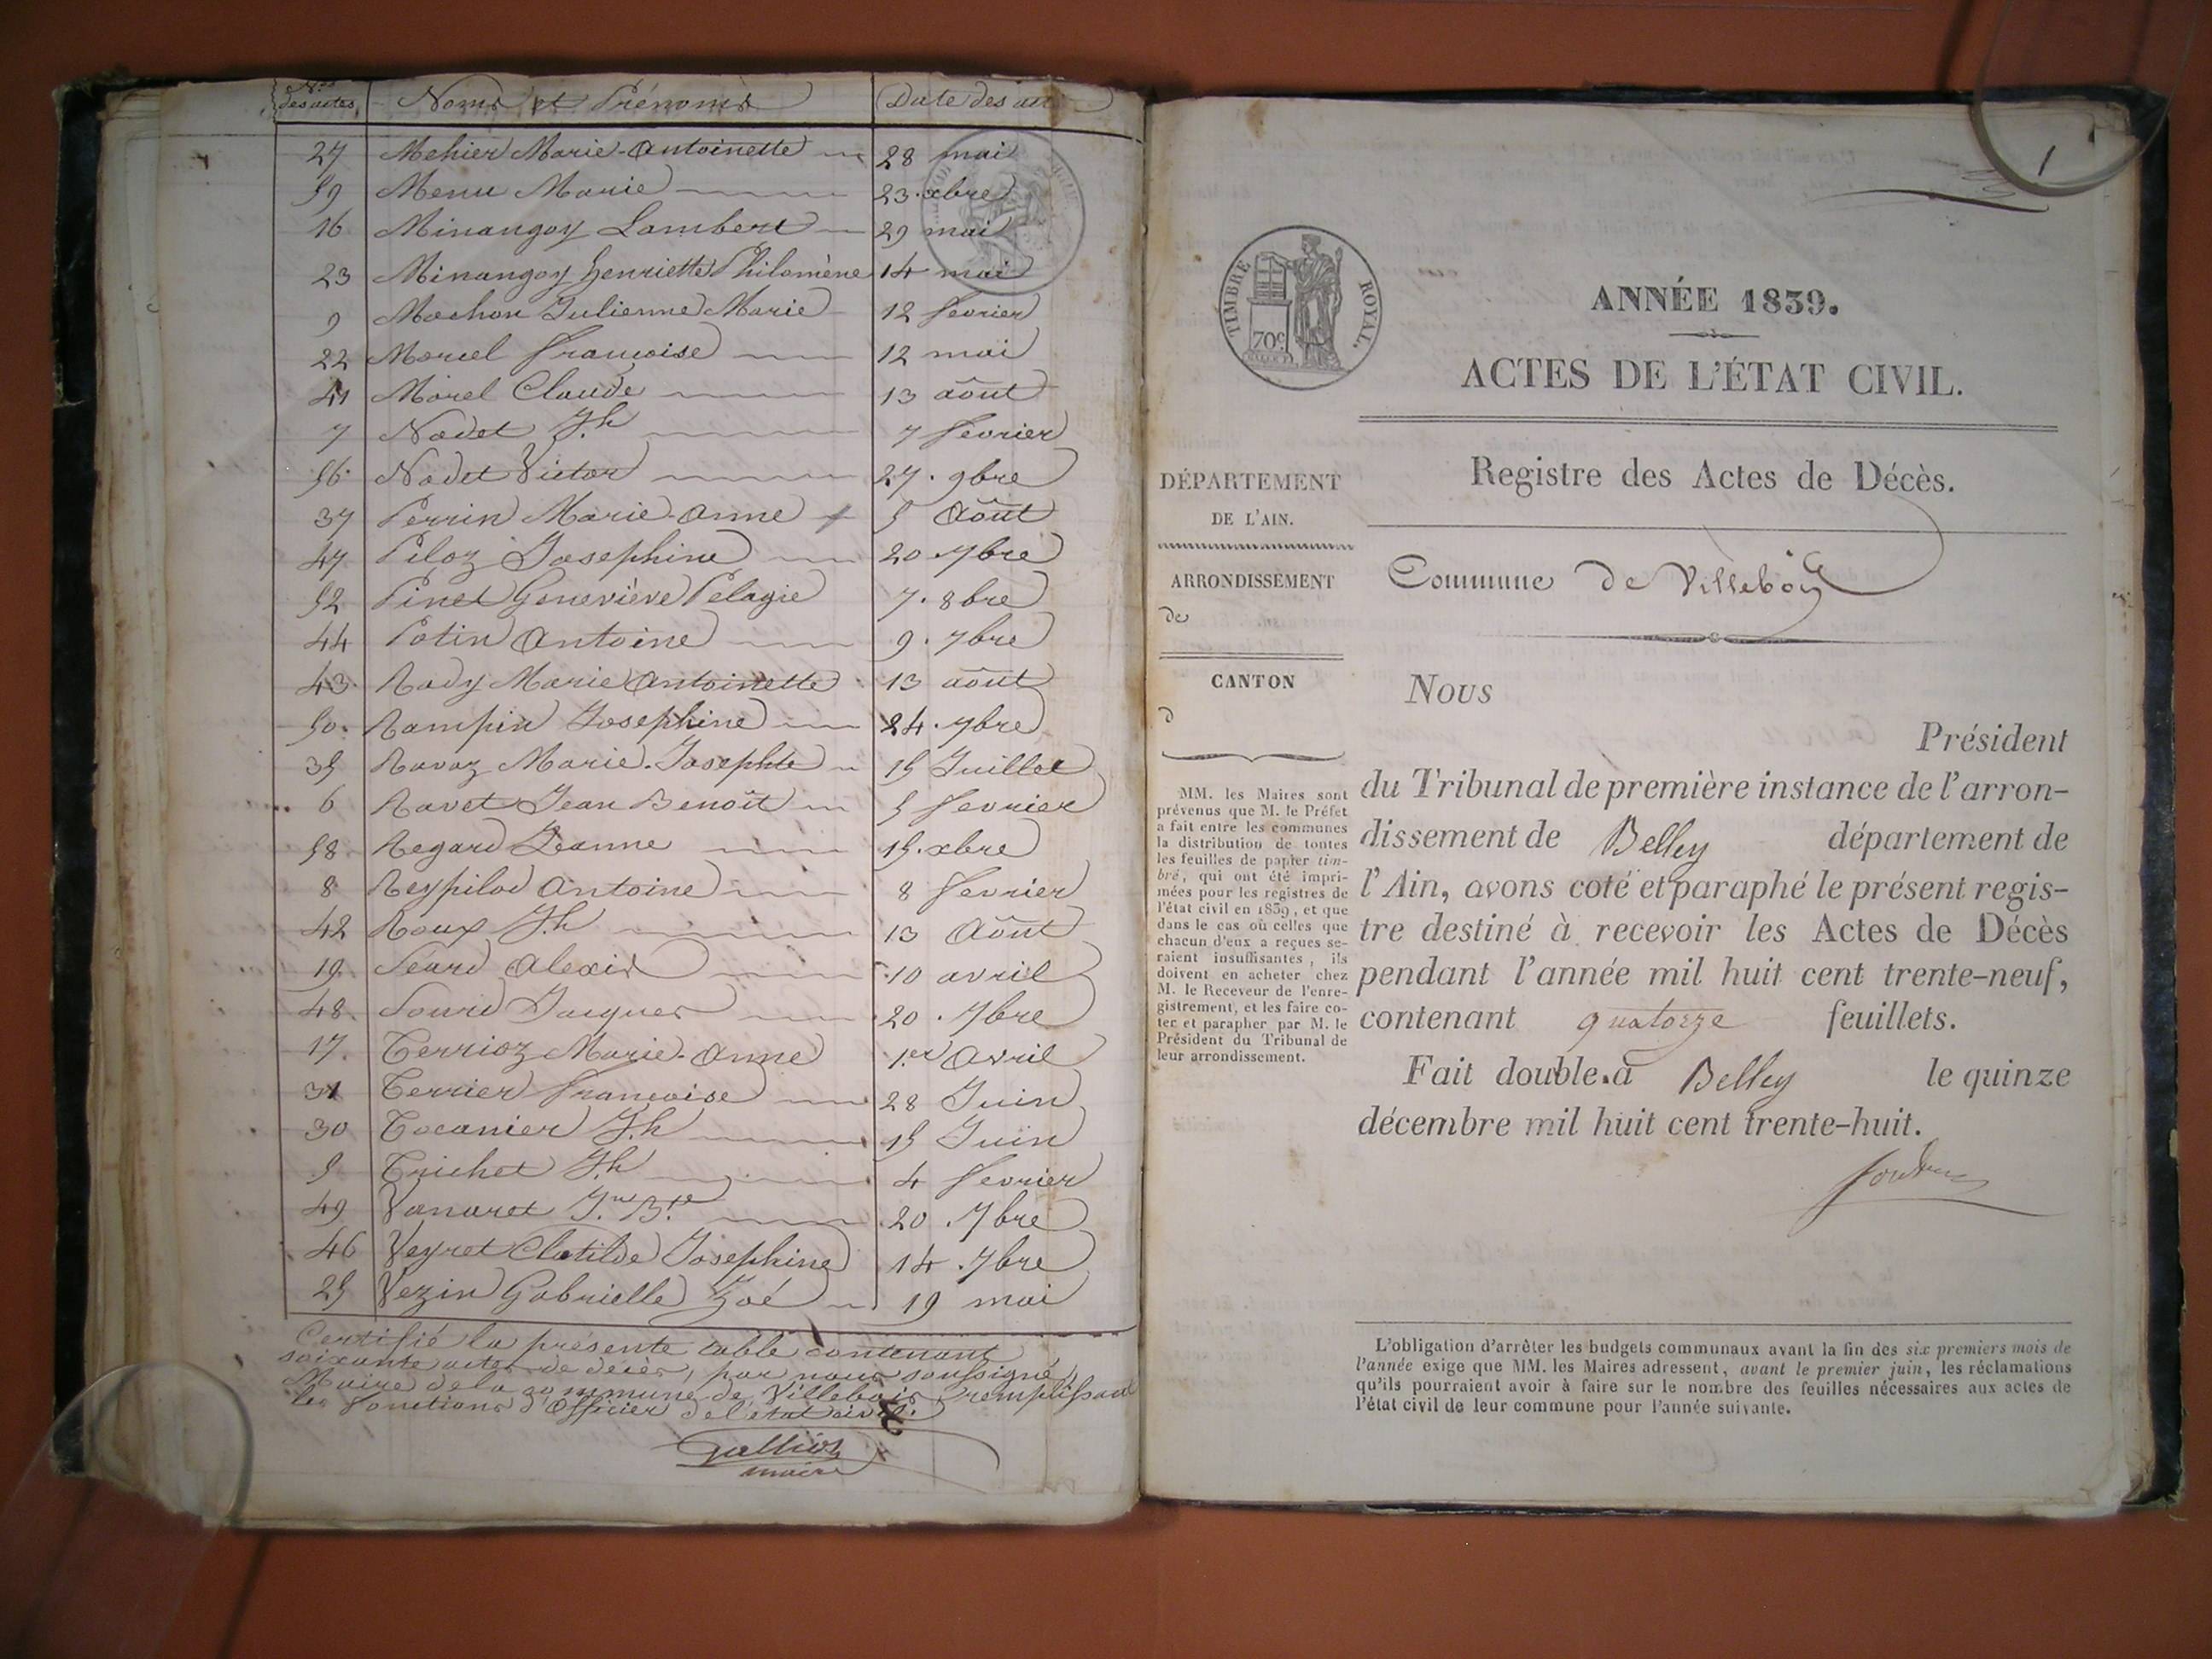 Nos
des actes
Noms et Prénoms
Date des
27 Mehier Marie-Antoinette 28 mai
59 Menu Marie 23. xbre
16 Minangoy Lambert 29 mai
23 Minangoy henriette Philomène 14 mai
9 Mochon Julienne Marie 12 fevrier
22 Morel francoise 12 mai
41 Morel Claude 13 août
7 Nodet Jh 7 fevrier
56 Nodet Victor 27. 9bre
37 Perrin Marie-Anne 5 Août
47 Piloz Josephine 20. 7bre
52 Pinet Geneviève Pelagie 7. 8bre
44 Potin Antoine 9. 7bre
43. Rody Marie Antoinette 13 août
50. Rampin Josephine 24. 7bre
35 Ravaz Marie-Josephte 15 Juillet
6 Ravet Jean Benoît 5 fevrier
58 Regard Jeanne 15. xbre
8 Reypilod Antoine 8 fevrier
42 Roux Jh 13 Août
19. Seard Alexis 10 avril
48. Sourd Jacques 20. 7bre
17. Terrioz Marie-Anne 1er Avril
31 Terrier francoise 28 Juin
30 Tocanier Jh 15 Juin
5 Trichet Jh 4 fevrier
49 Vanaret Jn Bte 20. 7bre
46 Veyret Clotilde Josephine 14. 7bre
25 Vezin Gabrielle Zoé 19 mai
Certifié la présente table contenant
soixante actes de décès, par nous soussigné,
Maire de la commune de Villebois remplissant
les fonctions d'Officier de l'état civil.
maire
1
TIMBRE ROYAL.
70c
ANNÉE 1839.
ACTES DE L'ÉTAT CIVIL.
Registre des Actes de Décès.
DÉPARTEMENT
DE L'AIN.
ARRONDISSEMENT
de
CANTON
d
MM. les Maires sont
prévenus que M. le Préfet
a fait entre les communes
la distribution de toutes
les feuilles de papier tim-
bré, qui ont été impri-
mées pour les registres de
l'état civil en 1839, et que
dans le cas où celles que
chacun d'eux a reçues se-
raient insuffisantes, ils
doivent en acheter chez
M. le Receveur de l'enre-
gistrement, et les faire co-
ter et parapher par M. le
Président du Tribunal de
leur arrondissement.
Commune de Villebois
Nous
Président
du Tribunal de première instance de l'arron-
dissement de Belley département de
l'Ain, avons coté et paraphé le présent regis-
tre destiné à recevoir les Actes de Décès
pendant l'année mil huit cent trente-neuf,
contenant quatorze feuillets.
Fait double à Belley le quinze
décembre mil huit cent trente-huit.
L'obligation d'arrêter les budgets communaux avant la fin des six premiers mois de
l'année exige que MM. les Maires adressent, avant le premier juin, les réclamations
qu'ils pourraient avoir à faire sur le nombre des feuilles nécessaires aux actes de
l'état civil de leur commune pour l'année suivante.